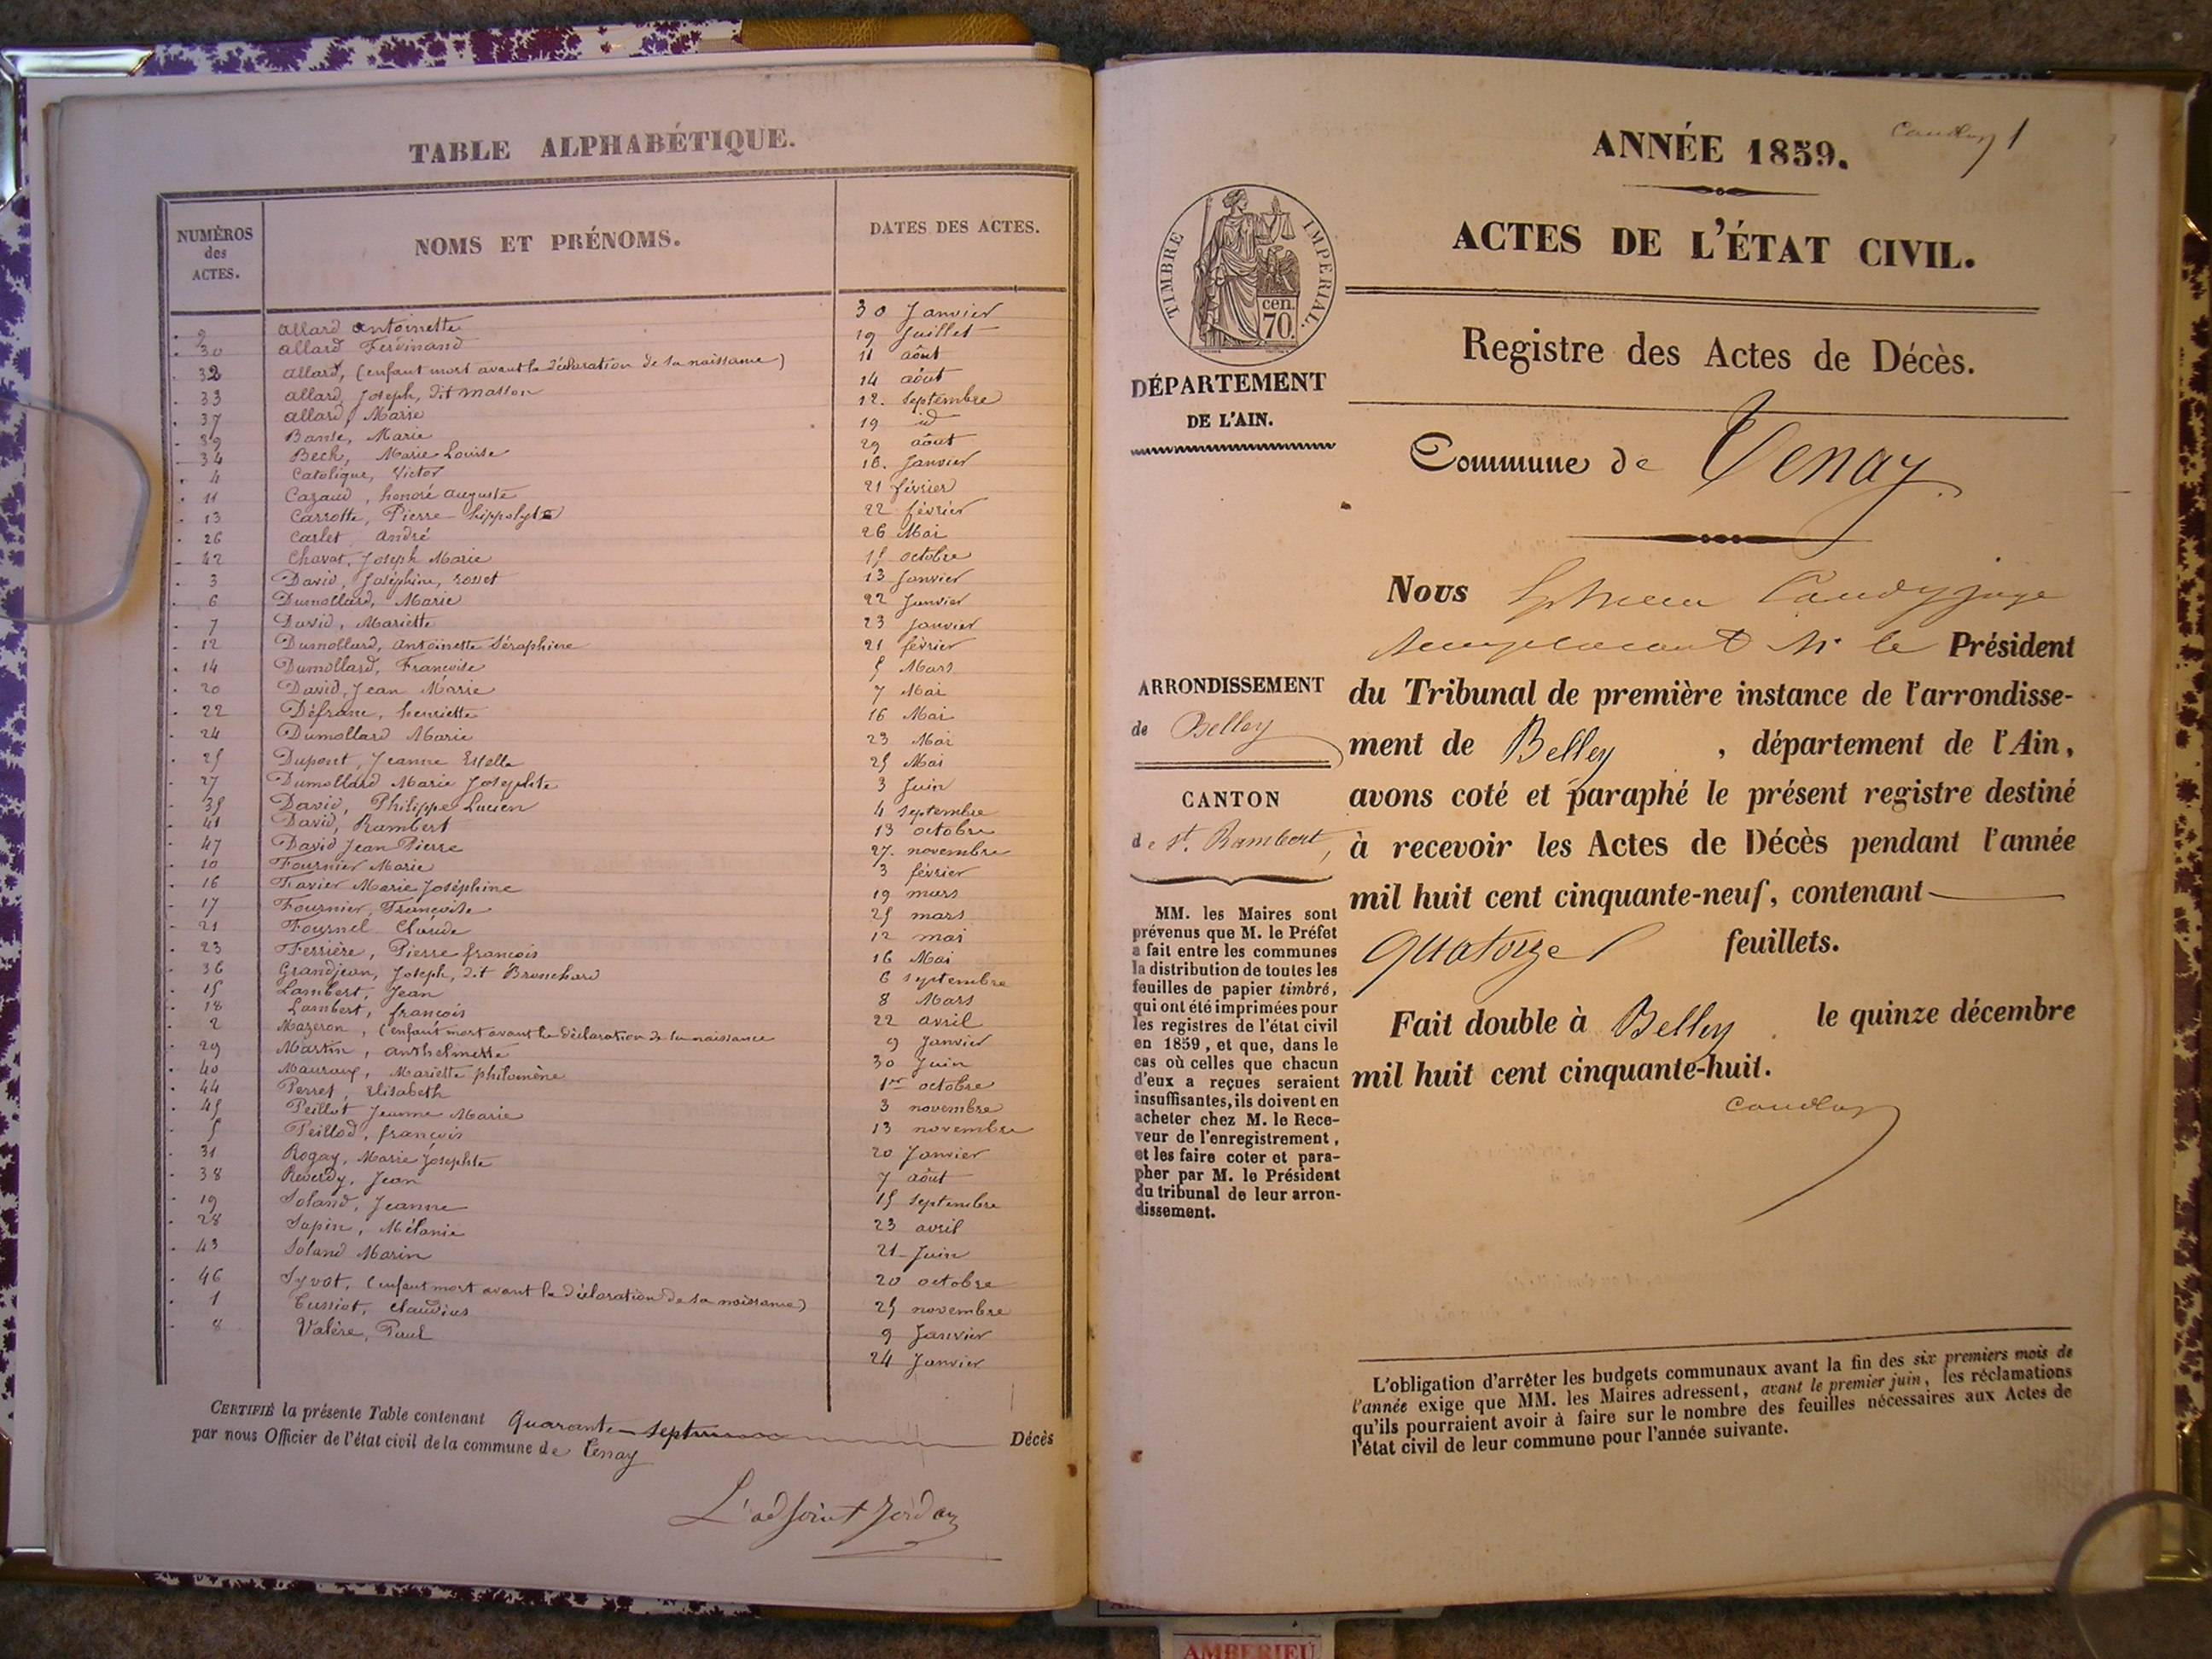 TABLE ALPHABÉTIQUE.
NUMÉROS des ACTES. NOMS ET PRÉNOMS. DATES DES ACTES.
9 allard antoinette 30 Janvier
30 allard Ferdinand 19 Juillet
32 allard, (enfant mort avant la déclaration de sa naissance) 11 août
33 allard, Joseph, dit masson 14 août
37 allard, Marie 12. Septembre
39 Marie 19 id
34 Bech, Marie Louise 29 août
4 Catolique, Victor 16. Janvier
11 Cazaud, honoré auguste 21 février
13 Carrotte, Pierre hippolyte 22 février
26 Carlet andré 26 Mai
42 Chavat, Joseph Marie 15 octobre
3 David, Joséphine, rosset 13 Janvier
6 Dumollard, Marie 22 Janvier
7 David, Mariette 23 Janvier
12 Dumollard, antoinette Séraphine 21 février
14 Dumollard, Françoise 5 Mars
20 David, Jean Marie 7 Mai
22 Défranc, henriette 16 Mai
24 Dumollard Marie 23 Mai
25 Dupont, Jeanne Estella 25 Mai
27 Dumollard Marie Josephte 3 Juin
35 David, Philippe Lucien 4 septembre
41 David, Rambert 13 octobre
47 David Jean Pierre 27. novembre
10 Fournier Marie 3 février
16 Favier Marie Joséphine 19 mars
17 Fournier, Françoise 25 mars
21 Fournel Claude 12 mai
23 Ferrière, Pierre françois 16 Mai
36 Grandjean, Joseph, dit Bronchard 6 septembre
15 Lambert, Jean 8 Mars
18 Lambert, françois 22 avril
2 Mazeron, (enfant mort avant la déclaration de la naissance 9 Janvier
29 Martin, anthelmette 30 Juin
40 Mauroux, Mariette philomène 1er octobre
44 Perret, Elisabeth 3 novembre
45 Peillot Jeanne Marie 13 novembre
5 Peillod, françois 20 Janvier
31 Rogay, Marie Josephte 7 août
38 Reverdy, Jean 15 septembre
19 Soland, Jeanne 23 avril
28 Sapin, Mélanie 21 Juin
43 Soland Marin 20 octobre
46 Syvot, (enfant mort avant la déclaration de sa naissance) 25 novembre
1 Tussiot, Claudius 9 Janvier
8 Valère, Paul 24 Janvier
CERTIFIÉ la présente Table contenant Quarante-sept Décès
par nous Officier de l'état civil de la commune de Tenay
L'adjoint Jordan
Caudey 1
ANNÉE 1859.
ACTES DE L'ÉTAT CIVIL.
TIMBRE IMPERIAL.
cen.
70.
Registre des Actes de Décès.
DÉPARTEMENT
DE L'AIN.
Commune de Tenay
Nous juge
remplacant Mr le Président
du Tribunal de première instance de l'arrondisse-
ment de Belley, département de l'Ain,
avons coté et paraphé le présent registre destiné
à recevoir les Actes de Décès pendant l'année
mil huit cent cinquante-neuf, contenant
quatorze feuillets.
Fait double à Belley le quinze décembre
mil huit cent cinquante-huit.
ARRONDISSEMENT
de Belley
CANTON
de St. Rambert,
MM. les Maires sont
prévenus que M. le Préfet
a fait entre les communes
la distribution de toutes les
feuilles de papier timbré,
qui ont été imprimées pour
les registres de l'état civil
en 1859, et que, dans le
cas où celles que chacun
d'eux a reçues seraient
insuffisantes, ils doivent en
acheter chez M. le Rece-
veur de l'enregistrement,
et les faire coter et para-
pher par M. le Président
du tribunal de leur arron-
dissement.
L'obligation d'arrêter les budgets communaux avant la fin des six premiers mois de
l'année exige que MM. les Maires adressent, avant le premier juin, les réclamations
qu'ils pourraient avoir à faire sur le nombre des feuilles nécessaires aux Actes de
l'état civil de leur commune pour l'année suivante.
AMBERIEU